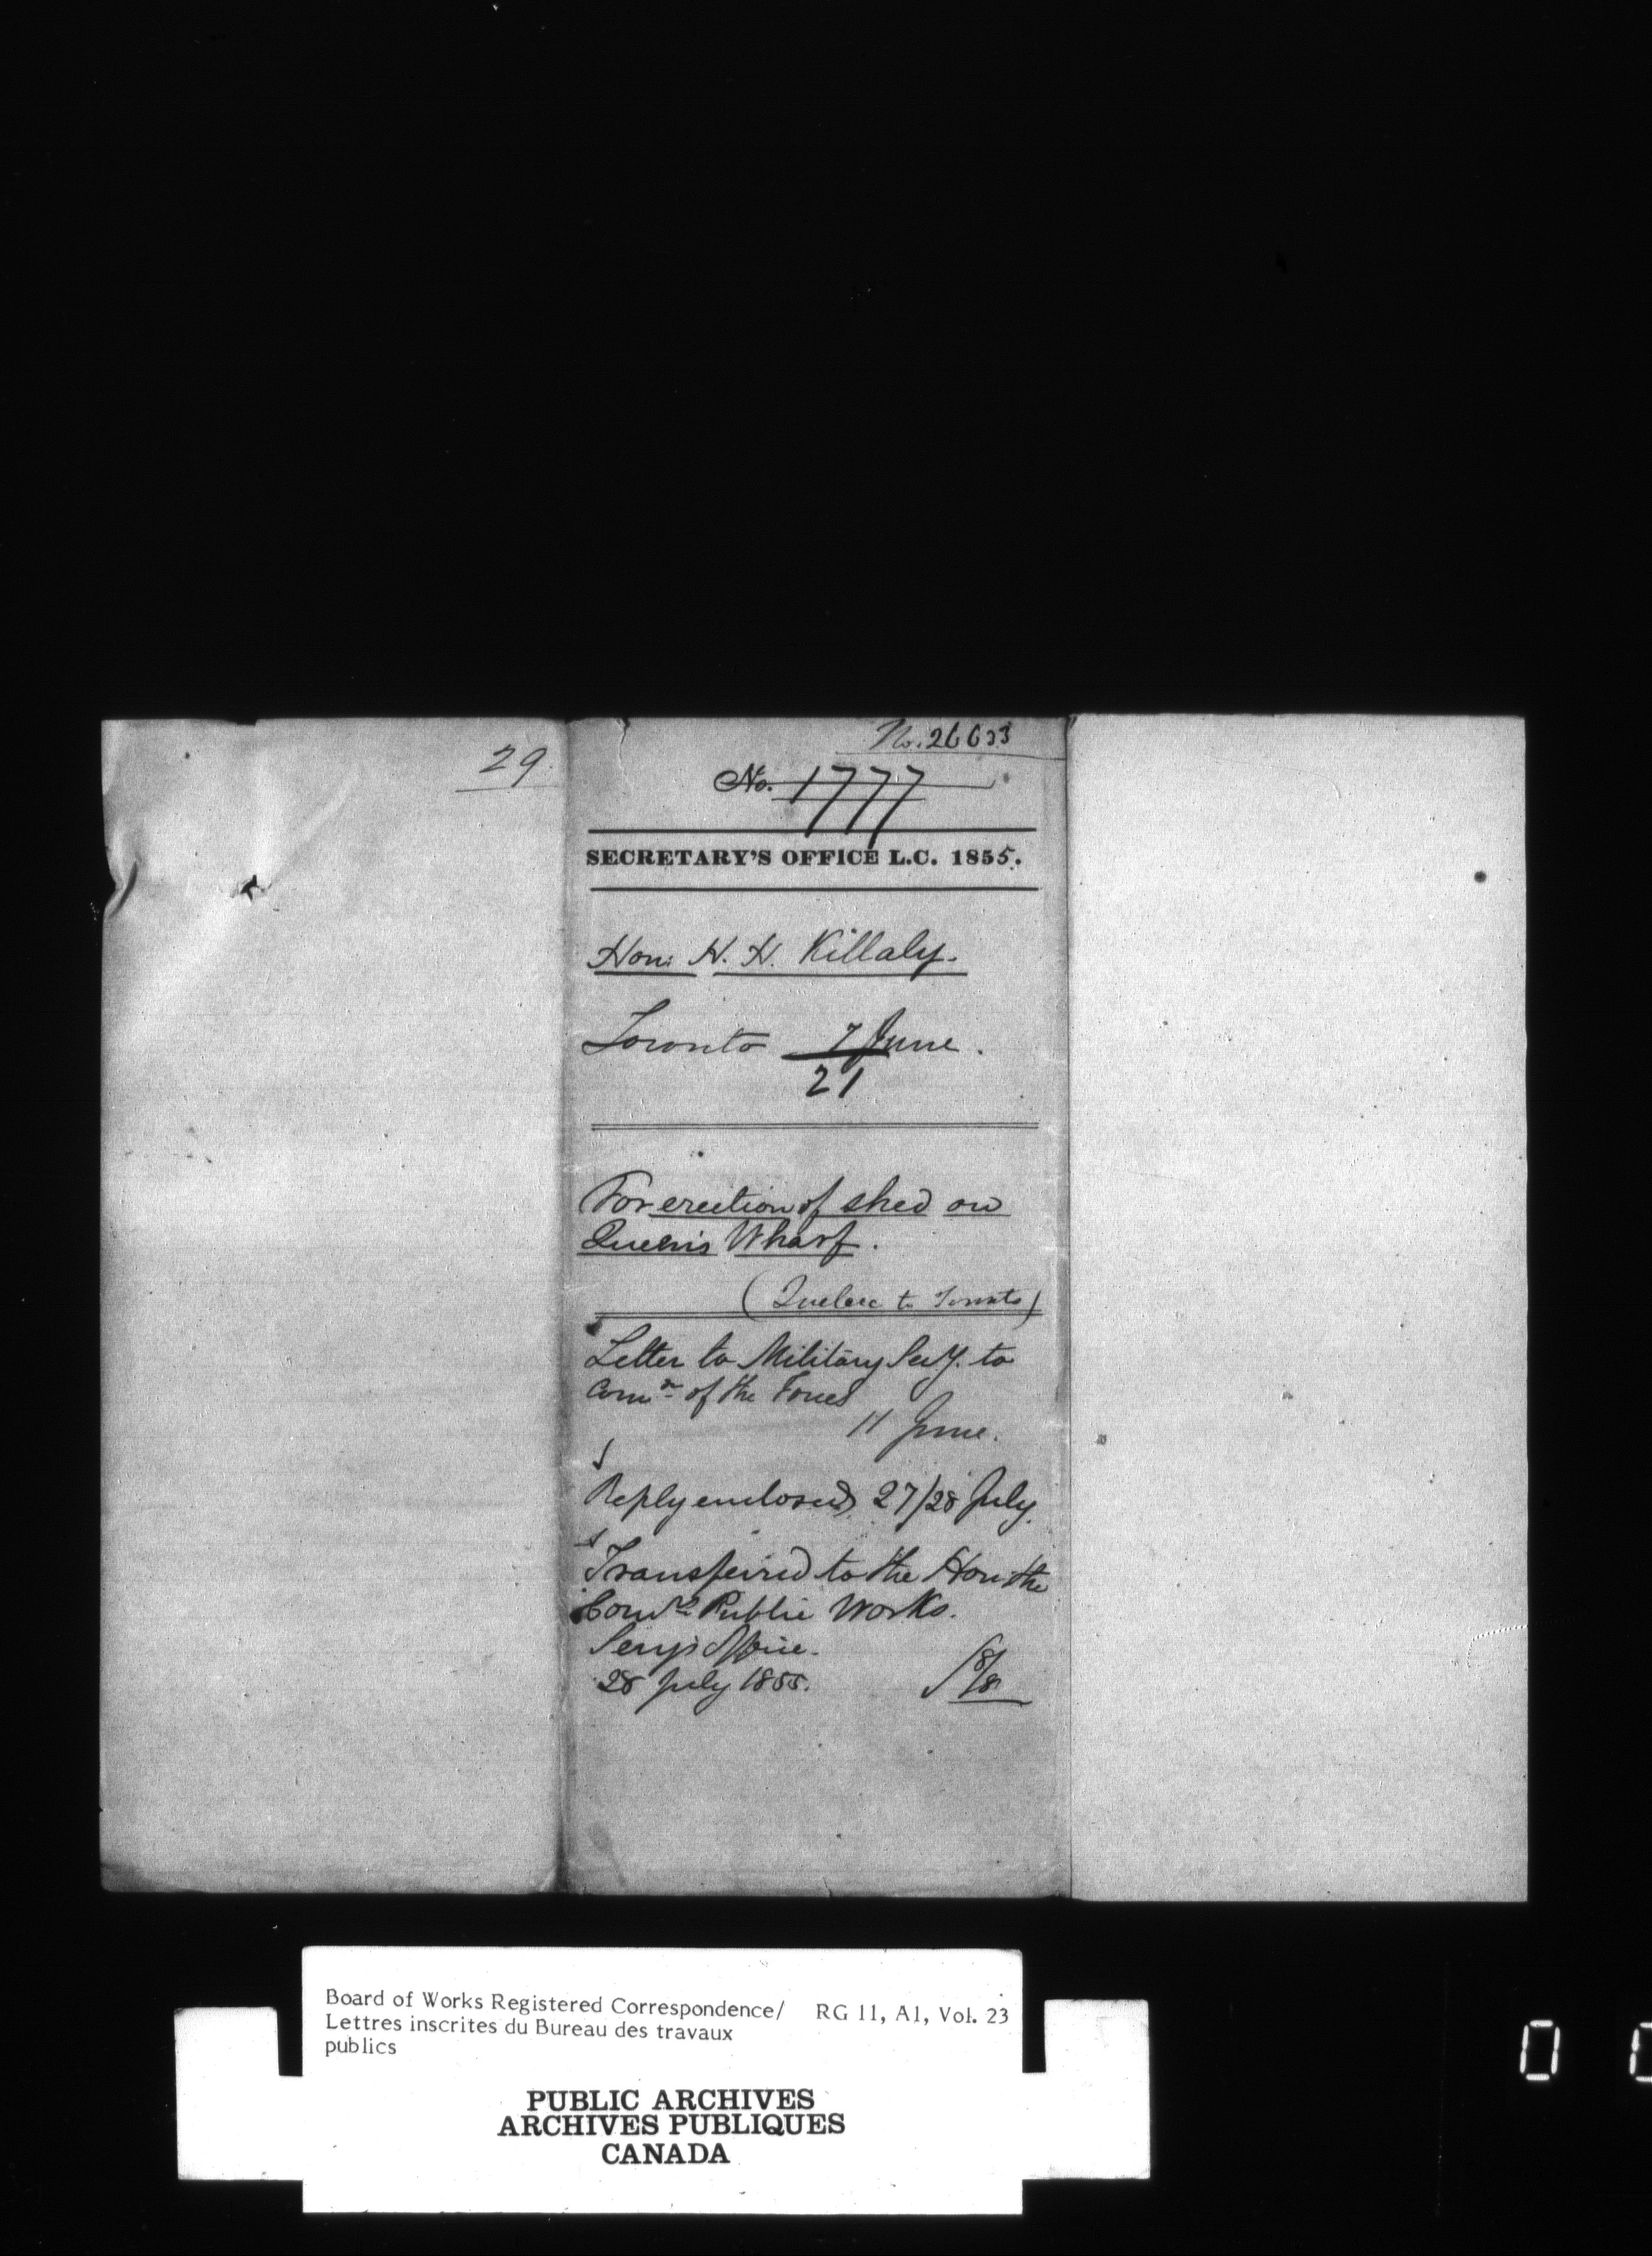 29.
No. 26633
No. 1777
SECRETARY'S OFFICE L.C. 1855.
Hon: H. H. Killaly.
Toronto 7 June.
21
For erection of shed on
Queen's Wharf.
(Quebec to Toronto)
Letter to Military Secy. to
Comr. of the Forces
11 June.
Reply enclosed, 27/28 July.
Transferred to the Hon. the
Comrs. Public Works.
Secy's Office.
28 July 1855.
8/8
Board of Works Registered Correspondence/ RG 11, A1, Vol. 23
Lettres inscrites du Bureau des travaux
publics
PUBLIC ARCHIVES
ARCHIVES PUBLIQUES
CANADA
0